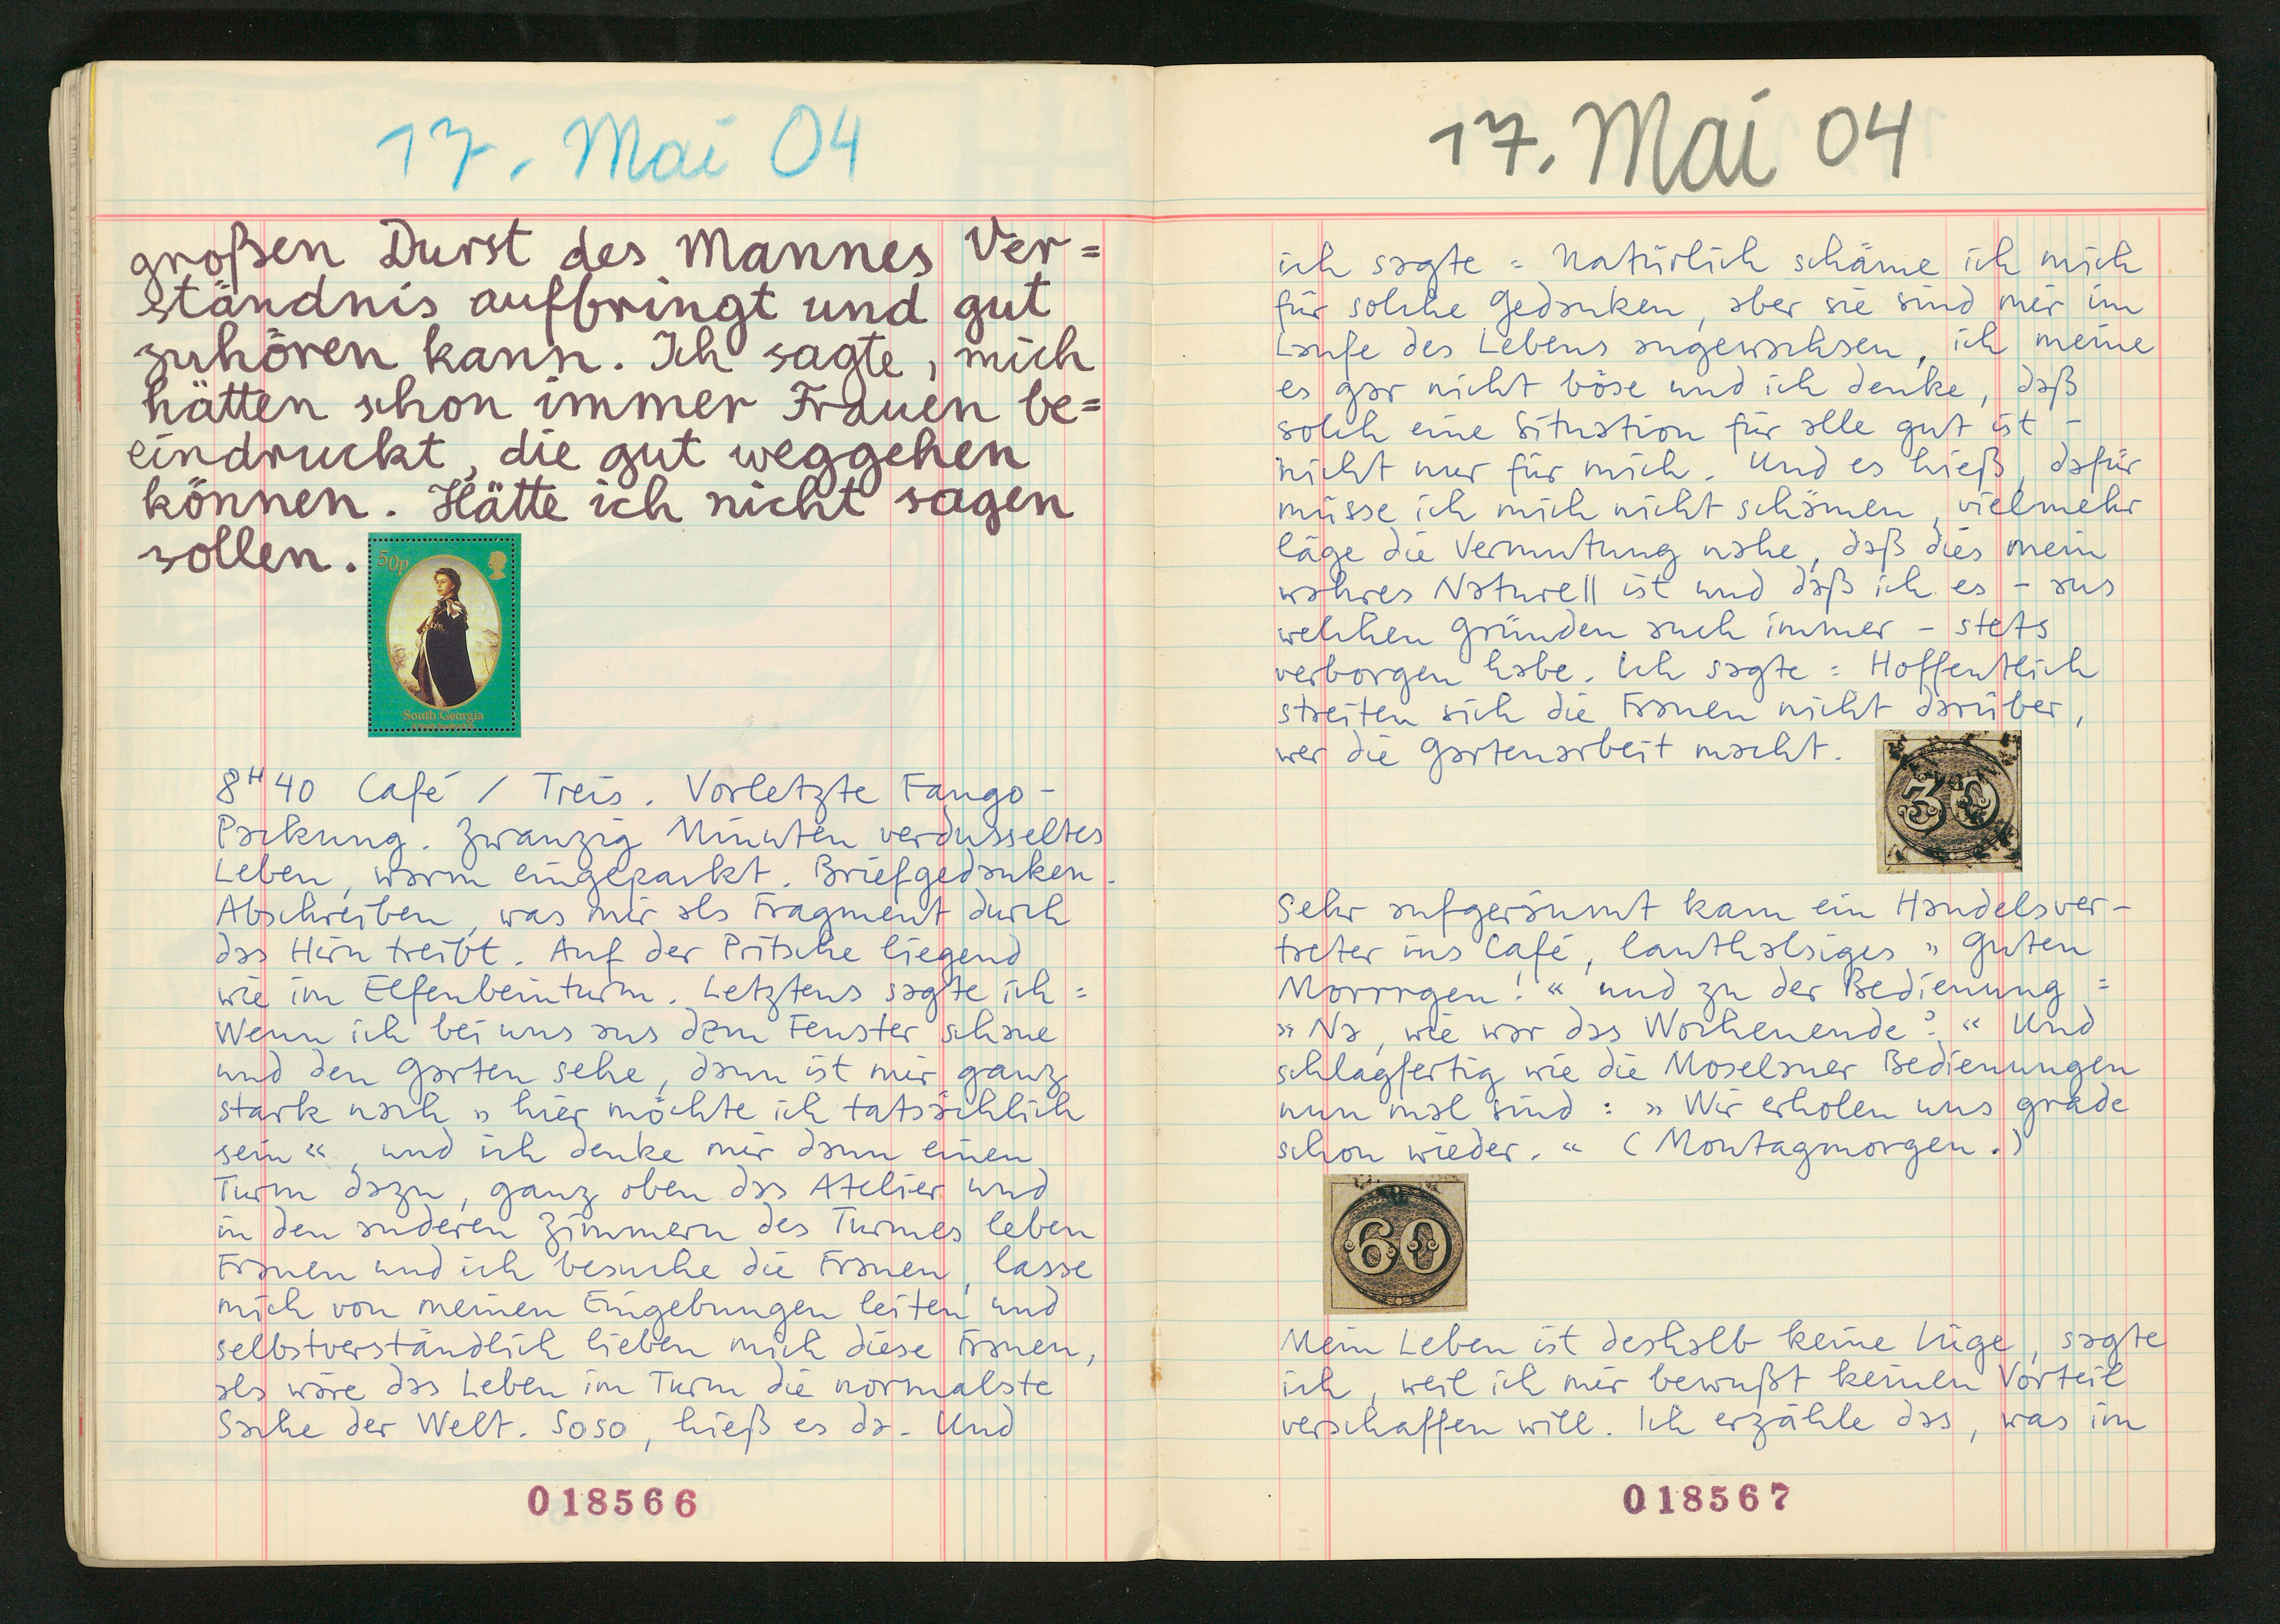 17. Mai 04
großen Durst des Mannes Ver=
ständnis aufbringt und gut
zuhören kann. Ich sagte, mich
hätten schon immer Frauen be=
eindruckt, die gut weggehen
können. Hätte ich nicht sagen
sollen.
50p
South Georgia
8H40 Café / Treis. Vorletzte Fango-
Packung. Zwanzig Minuten verdusseltes
Leben, warm eingepackt. Briefgedanken.
Abschreiben, was mir als Fragment durch
das Hirn treibt. Auf der Pritsche liegend
wie im Elfenbeinturm. Letztens sagte ich:
Wenn ich bei uns aus dem Fenster schaue
und den Garten sehe, dann ist mir ganz
stark nach »hier möchte ich tatsächlich
sein«, und ich denke mir dann einen
Turm dazu, ganz oben das Atelier und
in den anderen Zimmern des Turmes leben
Frauen und ich besuche die Frauen, lasse
mich von meinen Eingebungen leiten und
selbstverständlich lieben mich diese Frauen,
als wäre das Leben im Turm die normalste
Sache der Welt. Soso, hieß es da. Und
018566
17. Mai 04
ich sagte: Natürlich schäme ich mich
für solche Gedanken, aber sie sind mir im
Laufe des Lebens angewachsen, ich meine
es gar nicht böse und ich denke, daß
solch eine Situation für alle gut ist -
nicht nur für mich. Und es hieß, dafür
müsse ich mich nicht schämen, vielmehr
läge die Vermutung nahe, daß dies mein
wahres Naturell ist und daß ich es - aus
welchen Gründen auch immer - stets
verborgen habe. Ich sagte: Hoffentlich
streiten sich die Frauen nicht darüber,
wer die Gartenarbeit macht.
30
Sehr aufgeräumt kam ein Handelsver-
treter ins Café, lauthalsiges »Guten
Morrrgen!« und zu der Bedienung:
»Na, wie war das Wochenende?« Und
schlagfertig wie die Moselaner Bedienungen
nun mal sind: »Wir erholen uns grade
schon wieder.« (Montagmorgen.)
60
Mein Leben ist deshalb keine Lüge, sagte
ich, weil ich mir bewußt keinen Vorteil
verschaffen will. Ich erzähle das, was im
018567